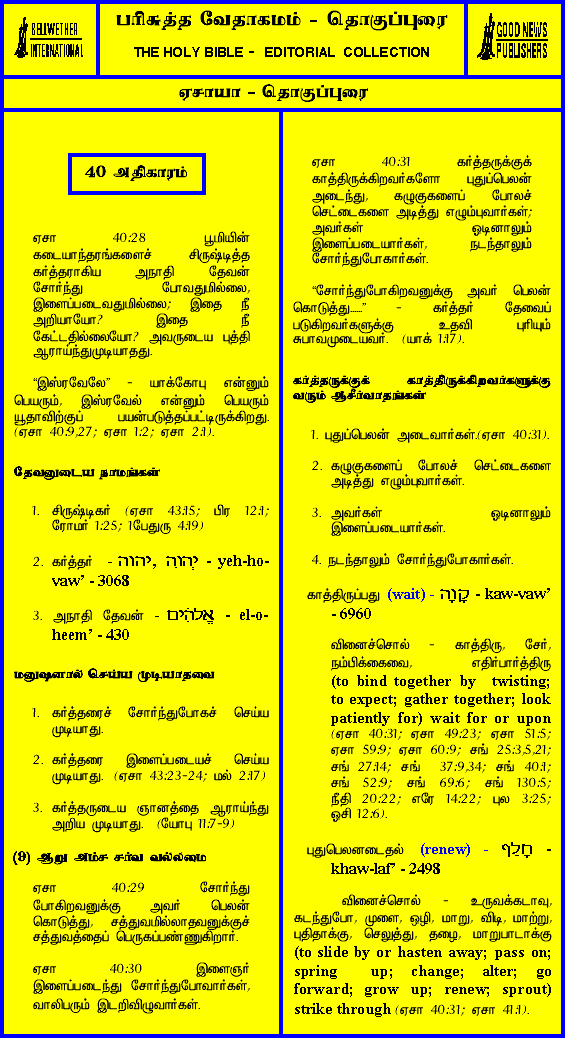 BELLWETHER
INTERNATIONAL
பரிசுத்த வேதாகமம் - தொகுப்புரை
THE HOLY BIBLE - EDITORIAL COLLECTION
GOOD NEWS
PUBLISHERS
ஏசாயா - தொகுப்புரை
40 அதிகாரம்
ஏசா 40:28 பூமியின்
கடையாந்தரங்களைச் சிருஷ்டித்த
கர்த்தராகிய அநாதி தேவன்
சோர்ந்து போவதுமில்லை,
இளைப்படைவதுமில்லை; இதை நீ
அறியாயோ? இதை நீ
கேட்டதில்லையோ? அவருடைய புத்தி
ஆராய்ந்துமுடியாதது.
“இஸ்ரவேலே” - யாக்கோபு என்னும்
பெயரும், இஸ்ரவேல் என்னும் பெயரும்
யூதாவிற்குப் பயன்படுத்தப்பட்டிருக்கிறது.
(ஏசா 40:9,27; ஏசா 1:2; ஏசா 2:1).
தேவனுடைய நாமங்கள்
1. சிருஷ்டிகர் (ஏசா 43:15; பிர 12:1;
ரோமர் 1:25; 1பேதுரு 4:19)
2. கர்த்தர் - יְהוָה, יהוה - yeh-ho-
vaw’ - 3068
3. அநாதி தேவன் - אֱלֹהִים - el-o-
heem’ - 430
மனுஷனால் செய்ய முடியாதவை
1. கர்த்தரைச் சோர்ந்துபோகச் செய்ய
முடியாது.
2. கர்த்தரை இளைப்படையச் செய்ய
முடியாது. (ஏசா 43:23-24; மல் 2:17)
3. கர்த்தருடைய ஞானத்தை ஆராய்ந்து
அறிய முடியாது. (யோபு 11:7-9)
(9) ஆறு அம்ச சர்வ வல்லமை
ஏசா 40:29 சோர்ந்து
போகிறவனுக்கு அவர் பெலன்
கொடுத்து, சத்துவமில்லாதவனுக்குச்
சத்துவத்தைப் பெருகப்பண்ணுகிறார்.
ஏசா 40:30 இளைஞர்
இளைப்படைந்து சோர்ந்துபோவார்கள்,
வாலிபரும் இடறிவிழுவார்கள்.
ஏசா 40:31 கர்த்தருக்குக்
காத்திருக்கிறவர்களோ புதுப்பெலன்
அடைந்து, கழுகுகளைப் போலச்
செட்டைகளை அடித்து எழும்புவார்கள்;
அவர்கள் ஓடினாலும்
இளைப்படையார்கள், நடந்தாலும்
சோர்ந்துபோகார்கள்.
“சோர்ந்துபோகிறவனுக்கு அவர் பெலன்
கொடுத்து......” - கர்த்தர் தேவைப்
படுகிறவர்களுக்கு உதவி புரியும்
சுபாவமுடையவர். (யாக் 1:17).
கர்த்தருக்குக் காத்திருக்கிறவர்களுக்கு
வரும் ஆசீர்வாதங்கள்
1. புதுப்பெலன் அடைவார்கள்.(ஏசா 40:31).
2. கழுகுகளைப் போலச் செட்டைகளை
அடித்து எழும்புவார்கள்.
3. அவர்கள் ஓடினாலும்
இளைப்படையார்கள்.
4. நடந்தாலும் சோர்ந்துபோகார்கள்.
காத்திருப்பது (wait) - קָוָה - kaw-vaw’
- 6960
வினைச்சொல் - காத்திரு, சேர்,
நம்பிக்கைவை, எதிர்பார்த்திரு
(to bind together by twisting;
to expect; gather together; look
patiently for) wait for or upon
(ஏசா 40:31; ஏசா 49:23; ஏசா 51:5;
ஏசா 59:9; ஏசா 60:9; சங் 25:3,5,21;
சங் 27:14; சங் 37:9,34; சங் 40:1;
சங் 52:9; சங் 69:6; சங் 130:5;
நீதி 20:22; எரே 14:22; புல 3:25;
ஓசி 12:6).
புதுபெலனடைதல் (renew) - חָלַף -
khaw-laf’ - 2498
வினைச்சொல் - உருவக்கடாவு,
கடந்துபோ, முளை, ஒழி, மாறு, விடி, மாற்று,
புதிதாக்கு, செலுத்து, தழை, மாறுபாடாக்கு
(to slide by or hasten away; pass on;
spring up; change; alter; go
forward; grow up; renew; sprout)
strike through (ஏசா 40:31; ஏசா 41:1).